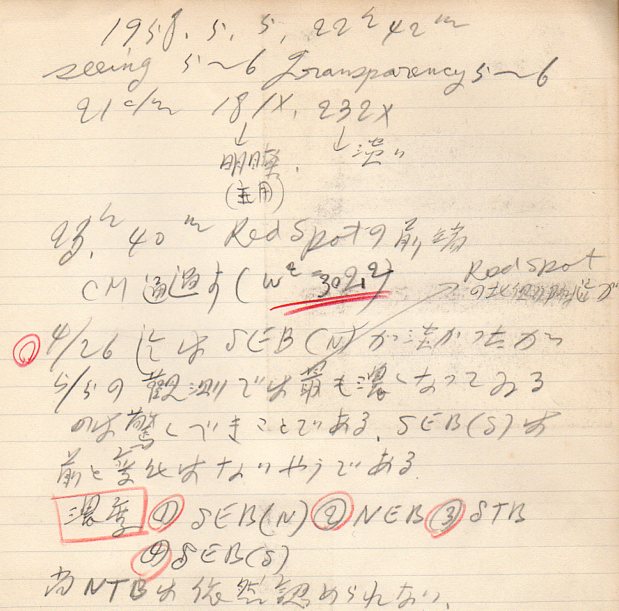 1958. 5. 5, 22h 42m
seeing 5~6 Transparency 5~6
21c/m 181X, 232X
↓ ↓
明瞭. 淡い
(主用)
23h 40m Red Spotの前端
CM通過す (W2=302.1°)
Red Spot
4/26 迄は SEB(N)が淡かったが
5/5の観測では最も濃くなってゐる
のは驚くべきことである. SEB(S)は
前と変化はないやうである
濃度 ① SEB(N) ② NEB ③ STB
④ SEB(S)
尚NTBは依然認められない.